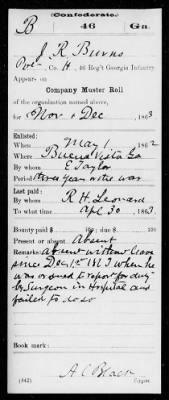 Confederate.
B 46 Ga.
J. R. Burns
Pvt, Co. H, 46 Reg't Georgia Infantry
Appears on
Company Muster Roll
of the organization named above,
for Nov & Dec, 1863
Enlisted:
When May 1, 1862
Where Buena Vista Ga
By whom E Taylor
Period three years or the war
Last paid:
By whom R. H. Leonard
To what time Apl 30, 1863.
Bounty paid $ 100; due $ 100
Present or absent Absent
Remarks: Absent without leave
since Dec 1st 1863 when he
was ordered to report for duty
by Surgeon in Hospital and
failed to do so
Book mark:
A. C. Black
(642) Copyist.